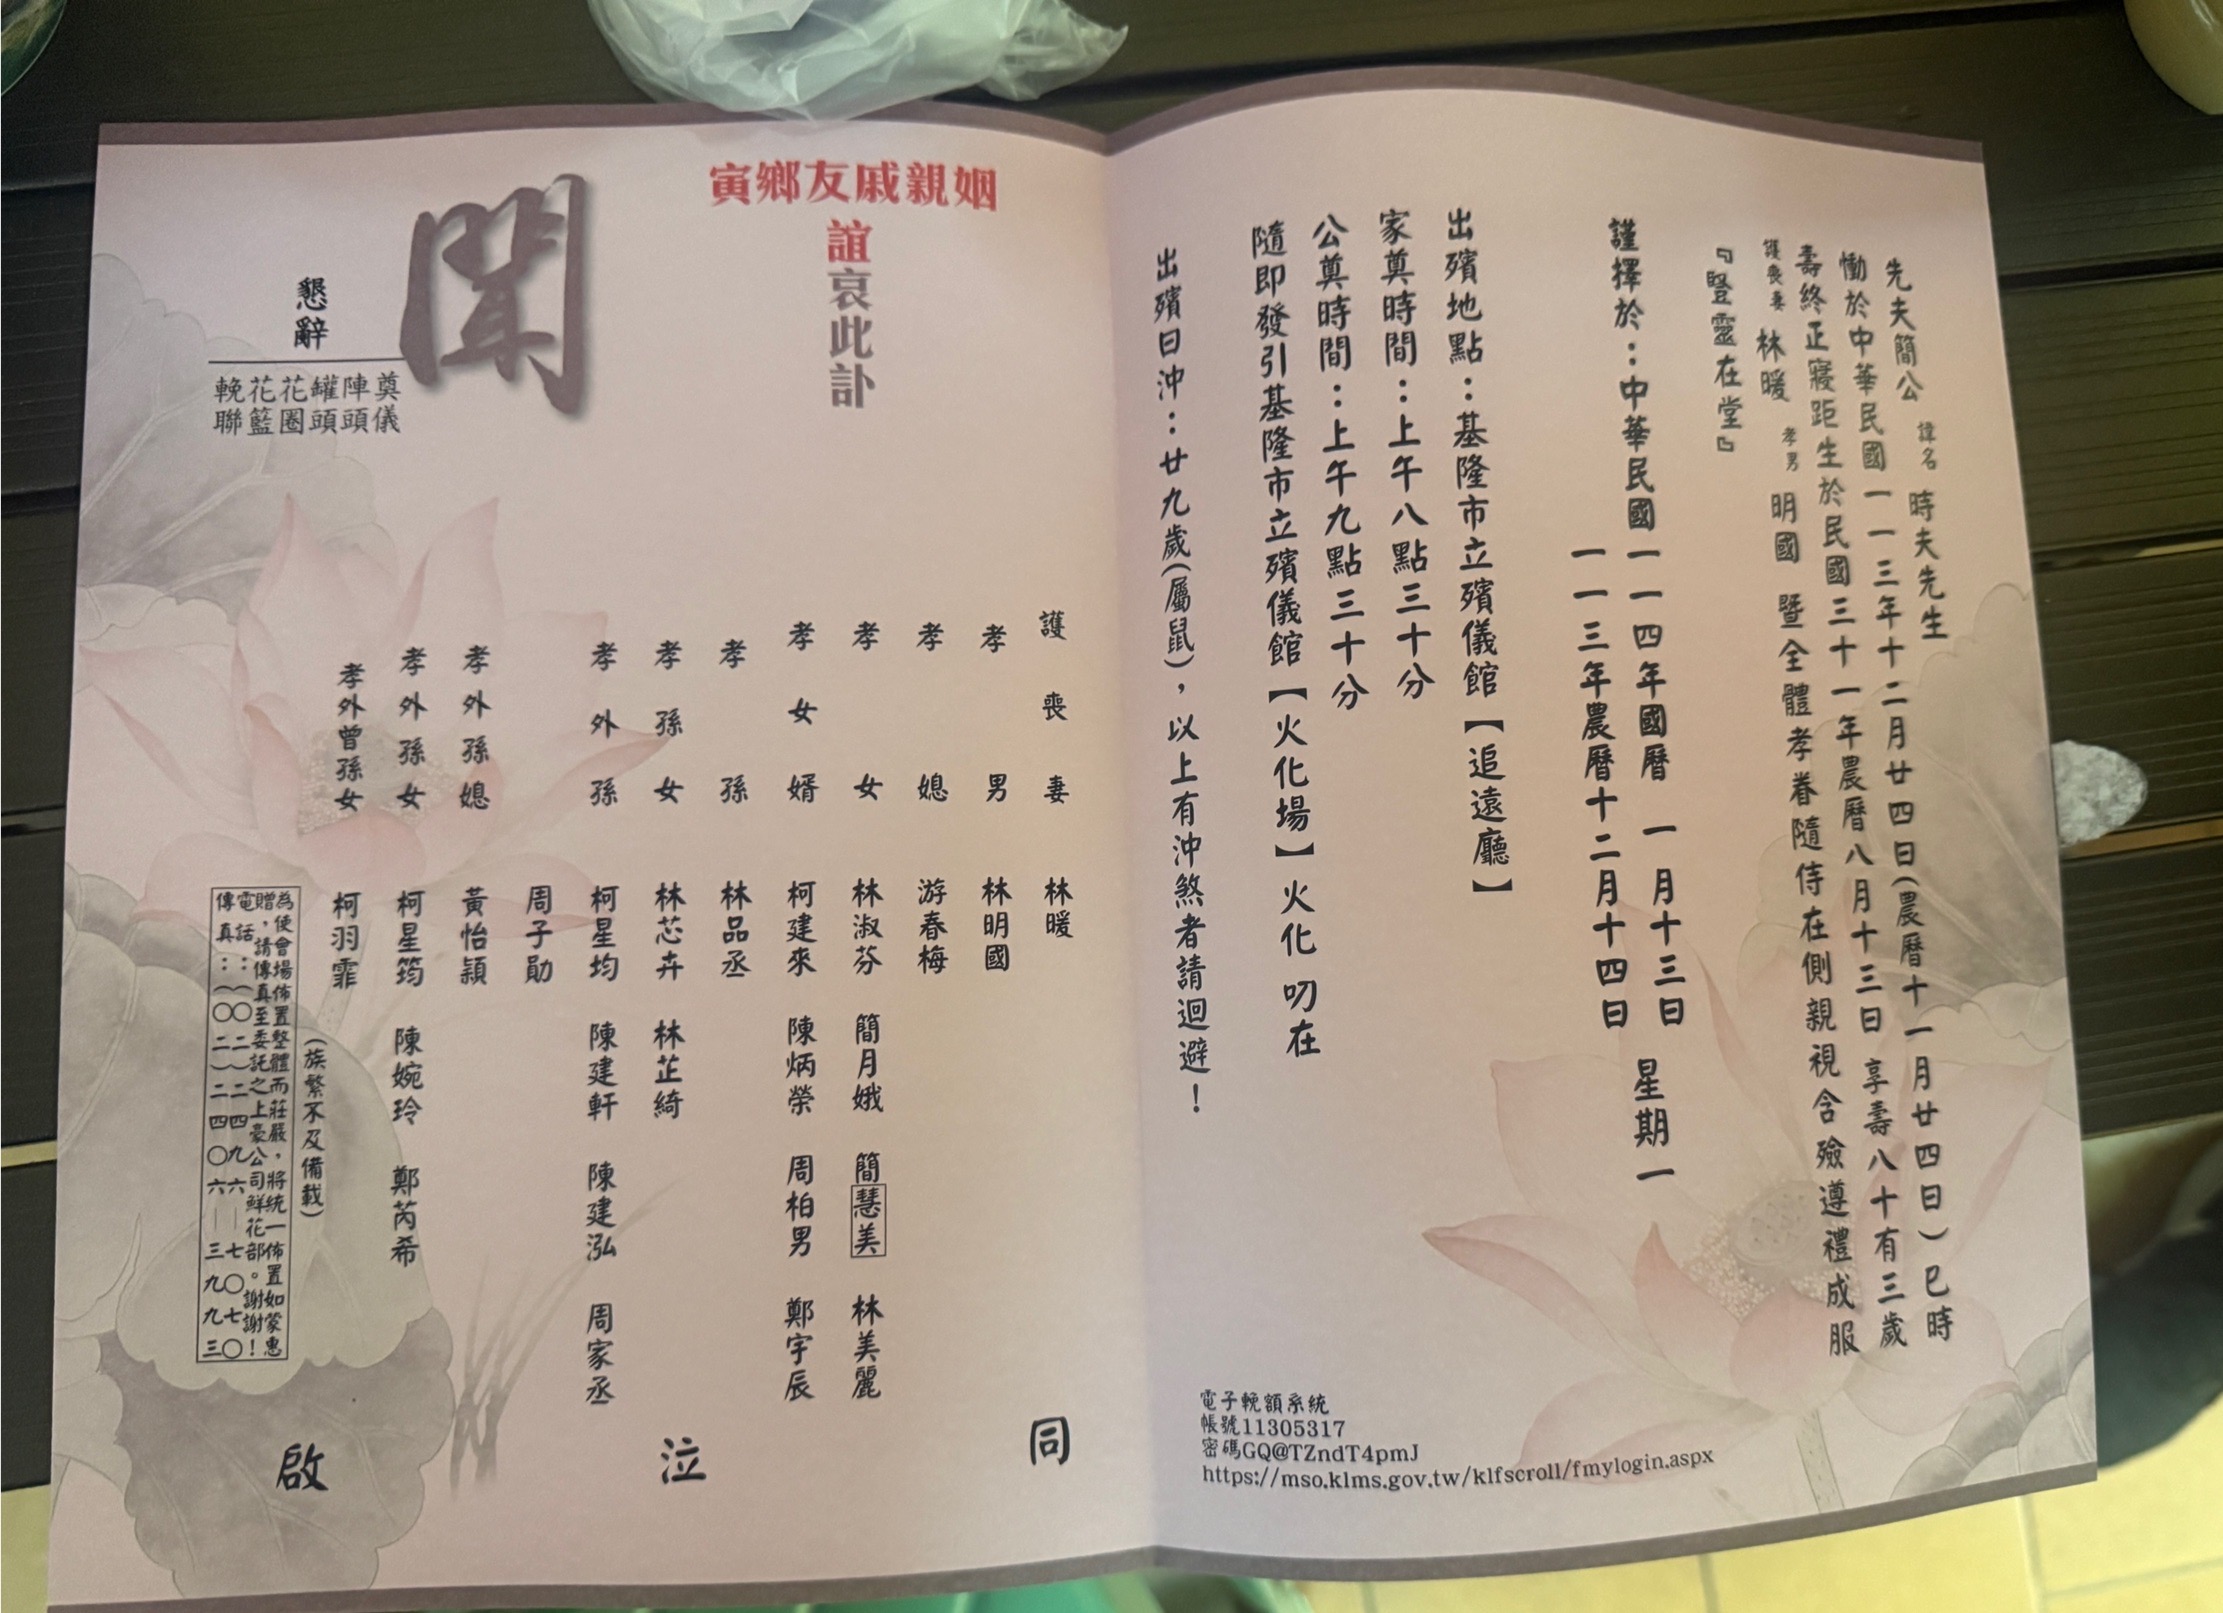 先夫簡公 諱名 時夫先生
慟於中華民國一一三年十二月廿四日(農曆十一月廿四日)巳時
壽終正寢距生於民國三十一年農曆八月十三日 享壽八十有三歲
護喪妻 林暖 孝男 明國 暨全體孝眷隨侍在側親視含殮遵禮成服
『豎靈在堂』
謹擇於：中華民國一一四年國曆 一月十三日 星期一
一一三年農曆十二月十四日
出殯地點：基隆市立殯儀館【追遠廳】
家奠時間：上午八點三十分
公奠時間：上午九點三十分
隨即發引基隆市立殯儀館【火化場】火化 叨在
出殯日沖：廿九歲(屬鼠)，以上有沖煞者請迴避！
電子輓額系統
帳號11305317
密碼GQ@TZndT4pmJ
https://mso.klms.gov.tw/klfscroll/fmylogin.aspx
寅鄉友戚親姻
誼哀此訃
聞
懇辭
奠儀
陣頭
罐頭
花圈
花籃
輓聯
護喪妻 林暖
孝男 林明國
孝媳 游春梅
孝女 林淑芬 簡月娥 簡慧美 林美麗
孝女婿 柯建來 陳炳榮 周柏男 鄭宇辰
孝孫 林品丞
孝孫女 林芯卉 林芷綺
孝外孫 柯星均 陳建軒 陳建泓 周家丞
周子勛
孝外孫媳 黃怡穎
孝外孫女 柯星筠 陳婉玲 鄭芮希
孝外曾孫女 柯羽霏
(族繁不及備載)
同泣啟
為使會場佈置整體而莊嚴，將統一佈置如蒙惠
贈，請傳真至委託之上豪公司鮮花部。謝謝！
電話：(〇二)二四九六－七〇七〇
傳真：(〇二)二四〇六－三九九三